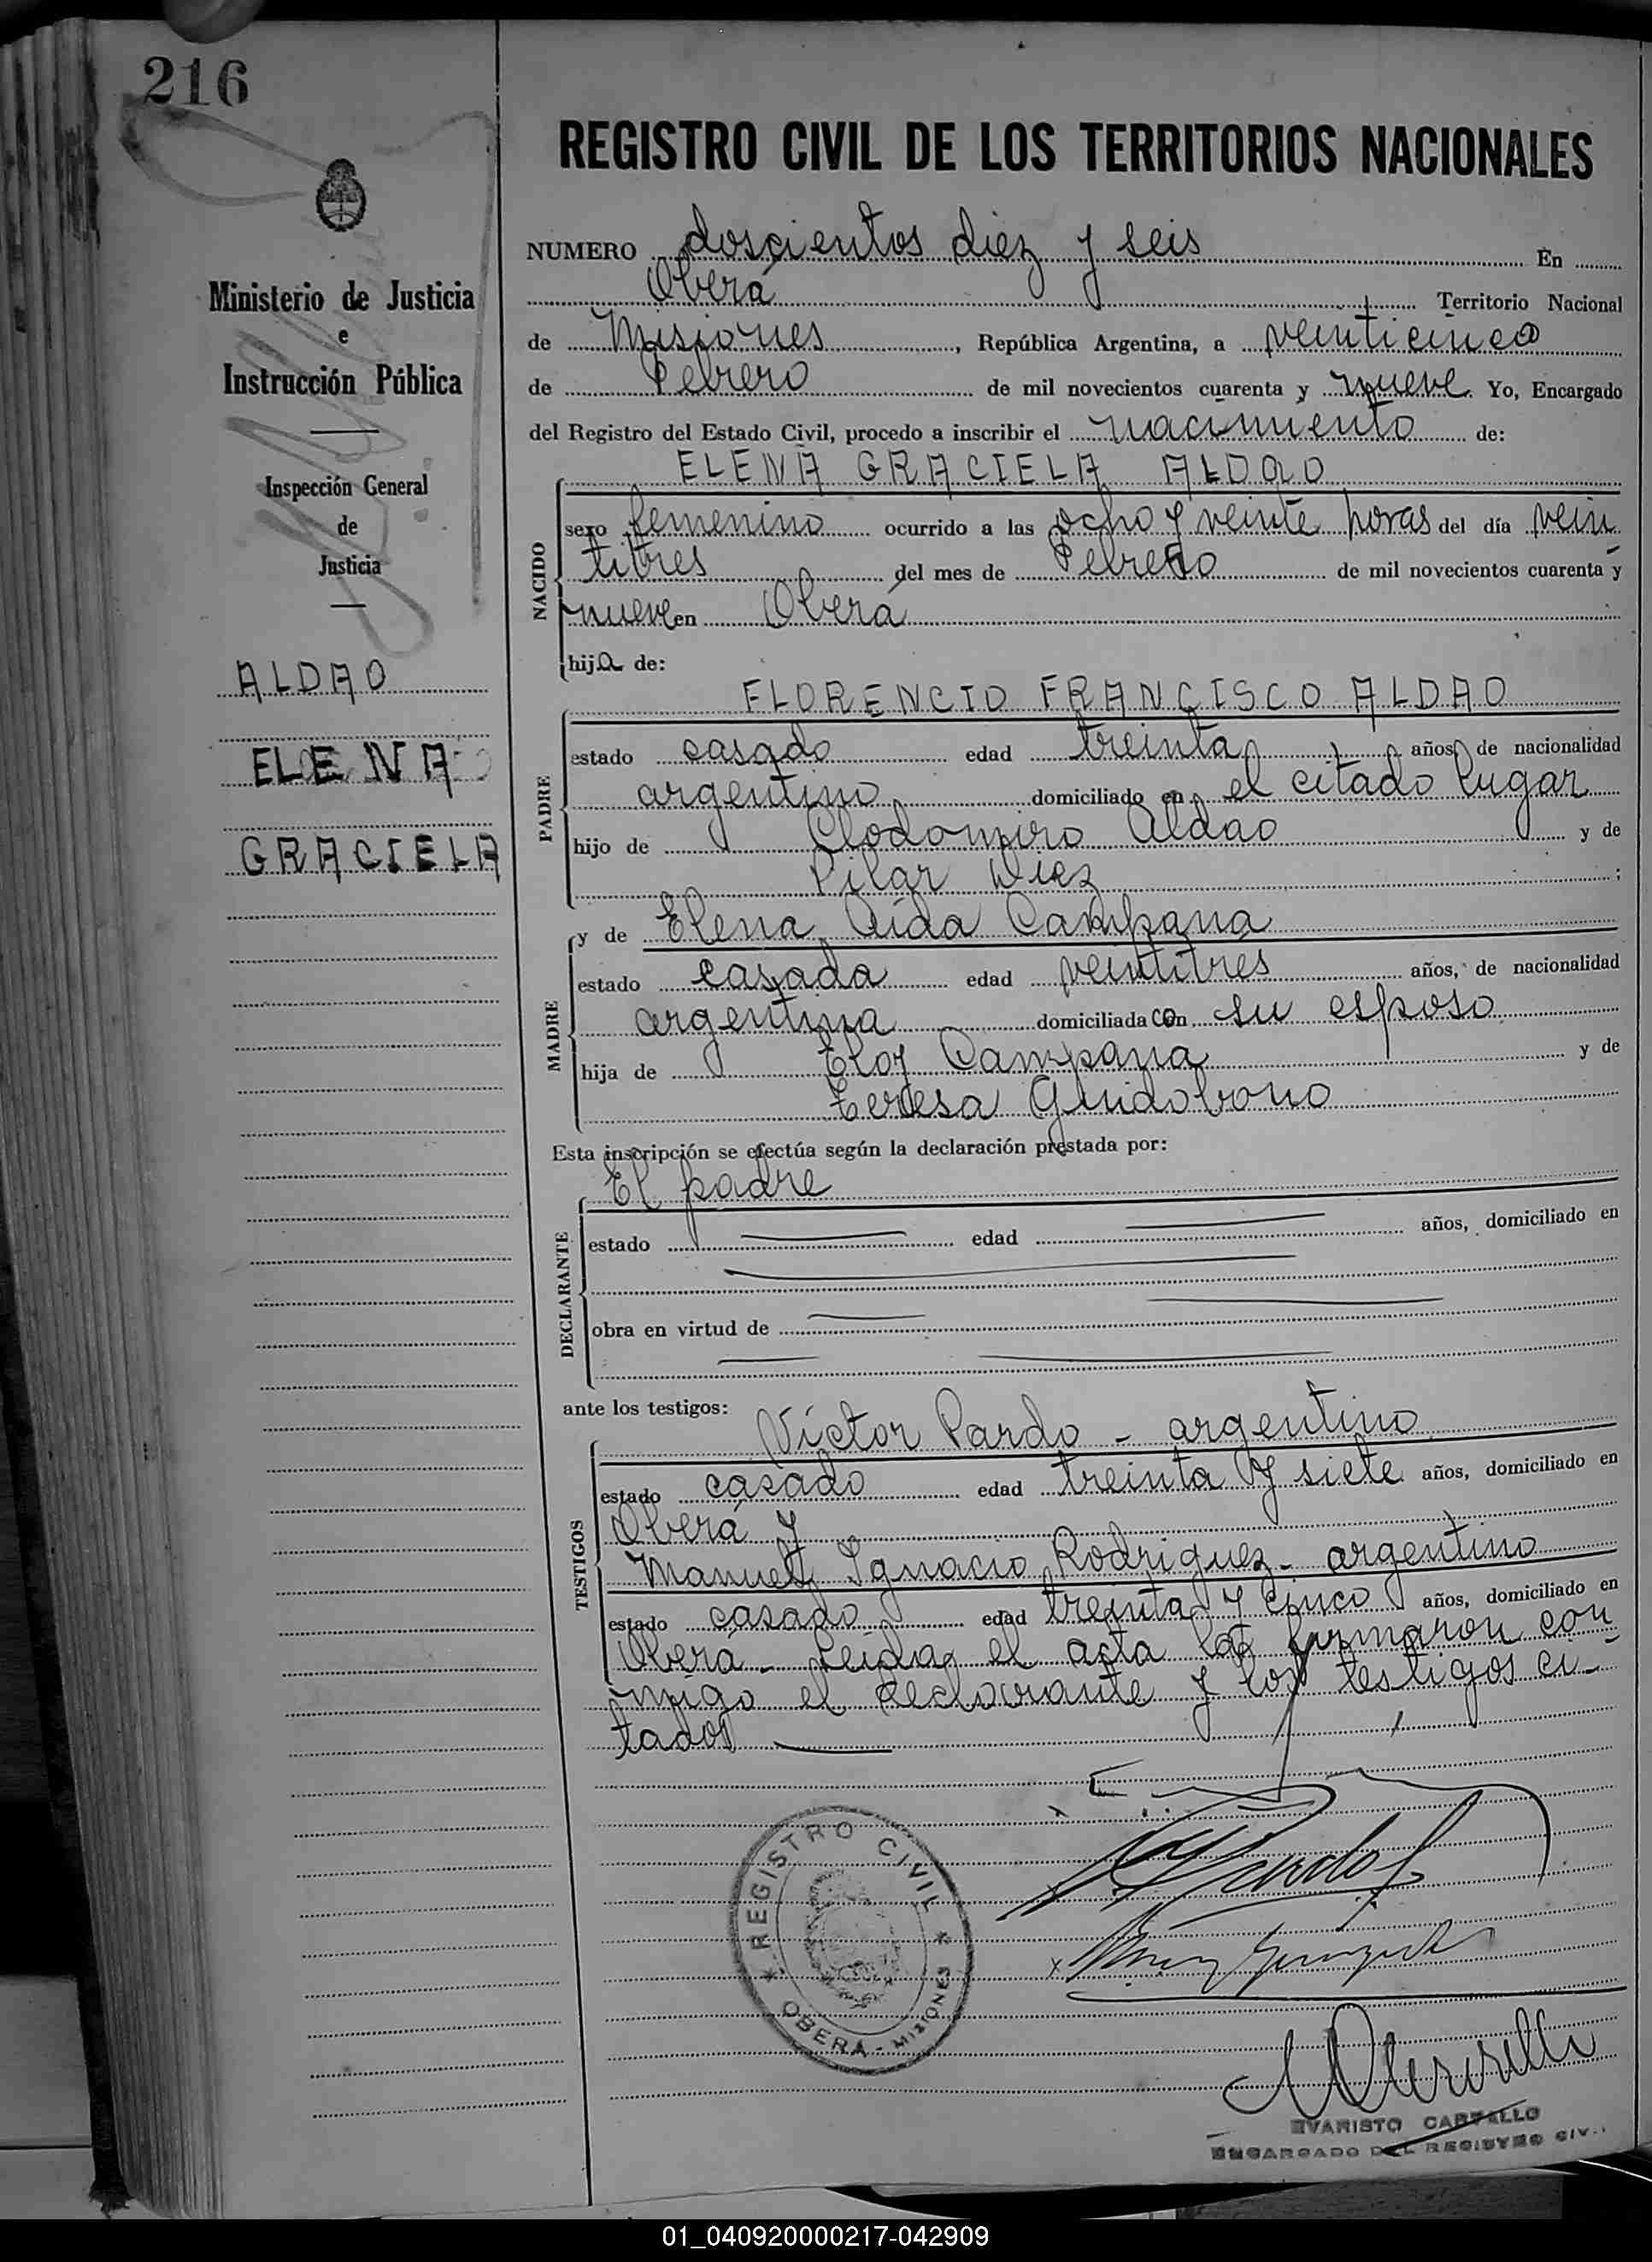 216
REGISTRO CIVIL DE LOS TERRITORIOS NACIONALES
Ministerio de Justicia
e
Instrucción Pública
Inspección General
de
Justicia
ALDAO
ELENA
GRACIELA
NUMERO doscientos diez y seis En
Oberá Territorio Nacional
de Misiones, República Argentina, a veinticinco
de Febrero de mil novecientos cuarenta y nueve Yo, Encargado
del Registro del Estado Civil, procedo a inscribir el nacimiento de:
ELENA GRACIELA ALDAO
NACIDO
sexo femenino ocurrido a las ocho y veinte horas del día vein
titres del mes de Febrero de mil novecientos cuarenta y
nueve en Oberá
hija de:
FLORENCIO FRANCISCO ALDAO
PADRE
estado casado edad treinta años, de nacionalidad
argentino domiciliado en el citado lugar
hijo de Clodomiro Aldao y de
Pilar Diez ;
y de Elena Aída Campana
MADRE
estado casada edad veintitrés años, de nacionalidad
argentina domiciliada con su esposo
hija de Eloy Campana y de
Teresa Guidobono
Esta inscripción se efectúa según la declaración prestada por:
El padre
DECLARANTE
estado edad años, domiciliado en
obra en virtud de
ante los testigos:
Víctor Pardo - argentino
TESTIGOS
estado casado edad treinta y siete años, domiciliado en
Oberá y
Manuel Ignacio Rodriguez - argentino
estado casado edad treinta y cinco años, domiciliado en
Oberá - Leída el acta la firmaron con
migo el declarante y los testigos ci-
tados
REGISTRO CIVIL
OBERA - MISIONES
EVARISTO CARVALLO
ENCARGADO DEL REGISTRO CIV.
01_040920000217-042909